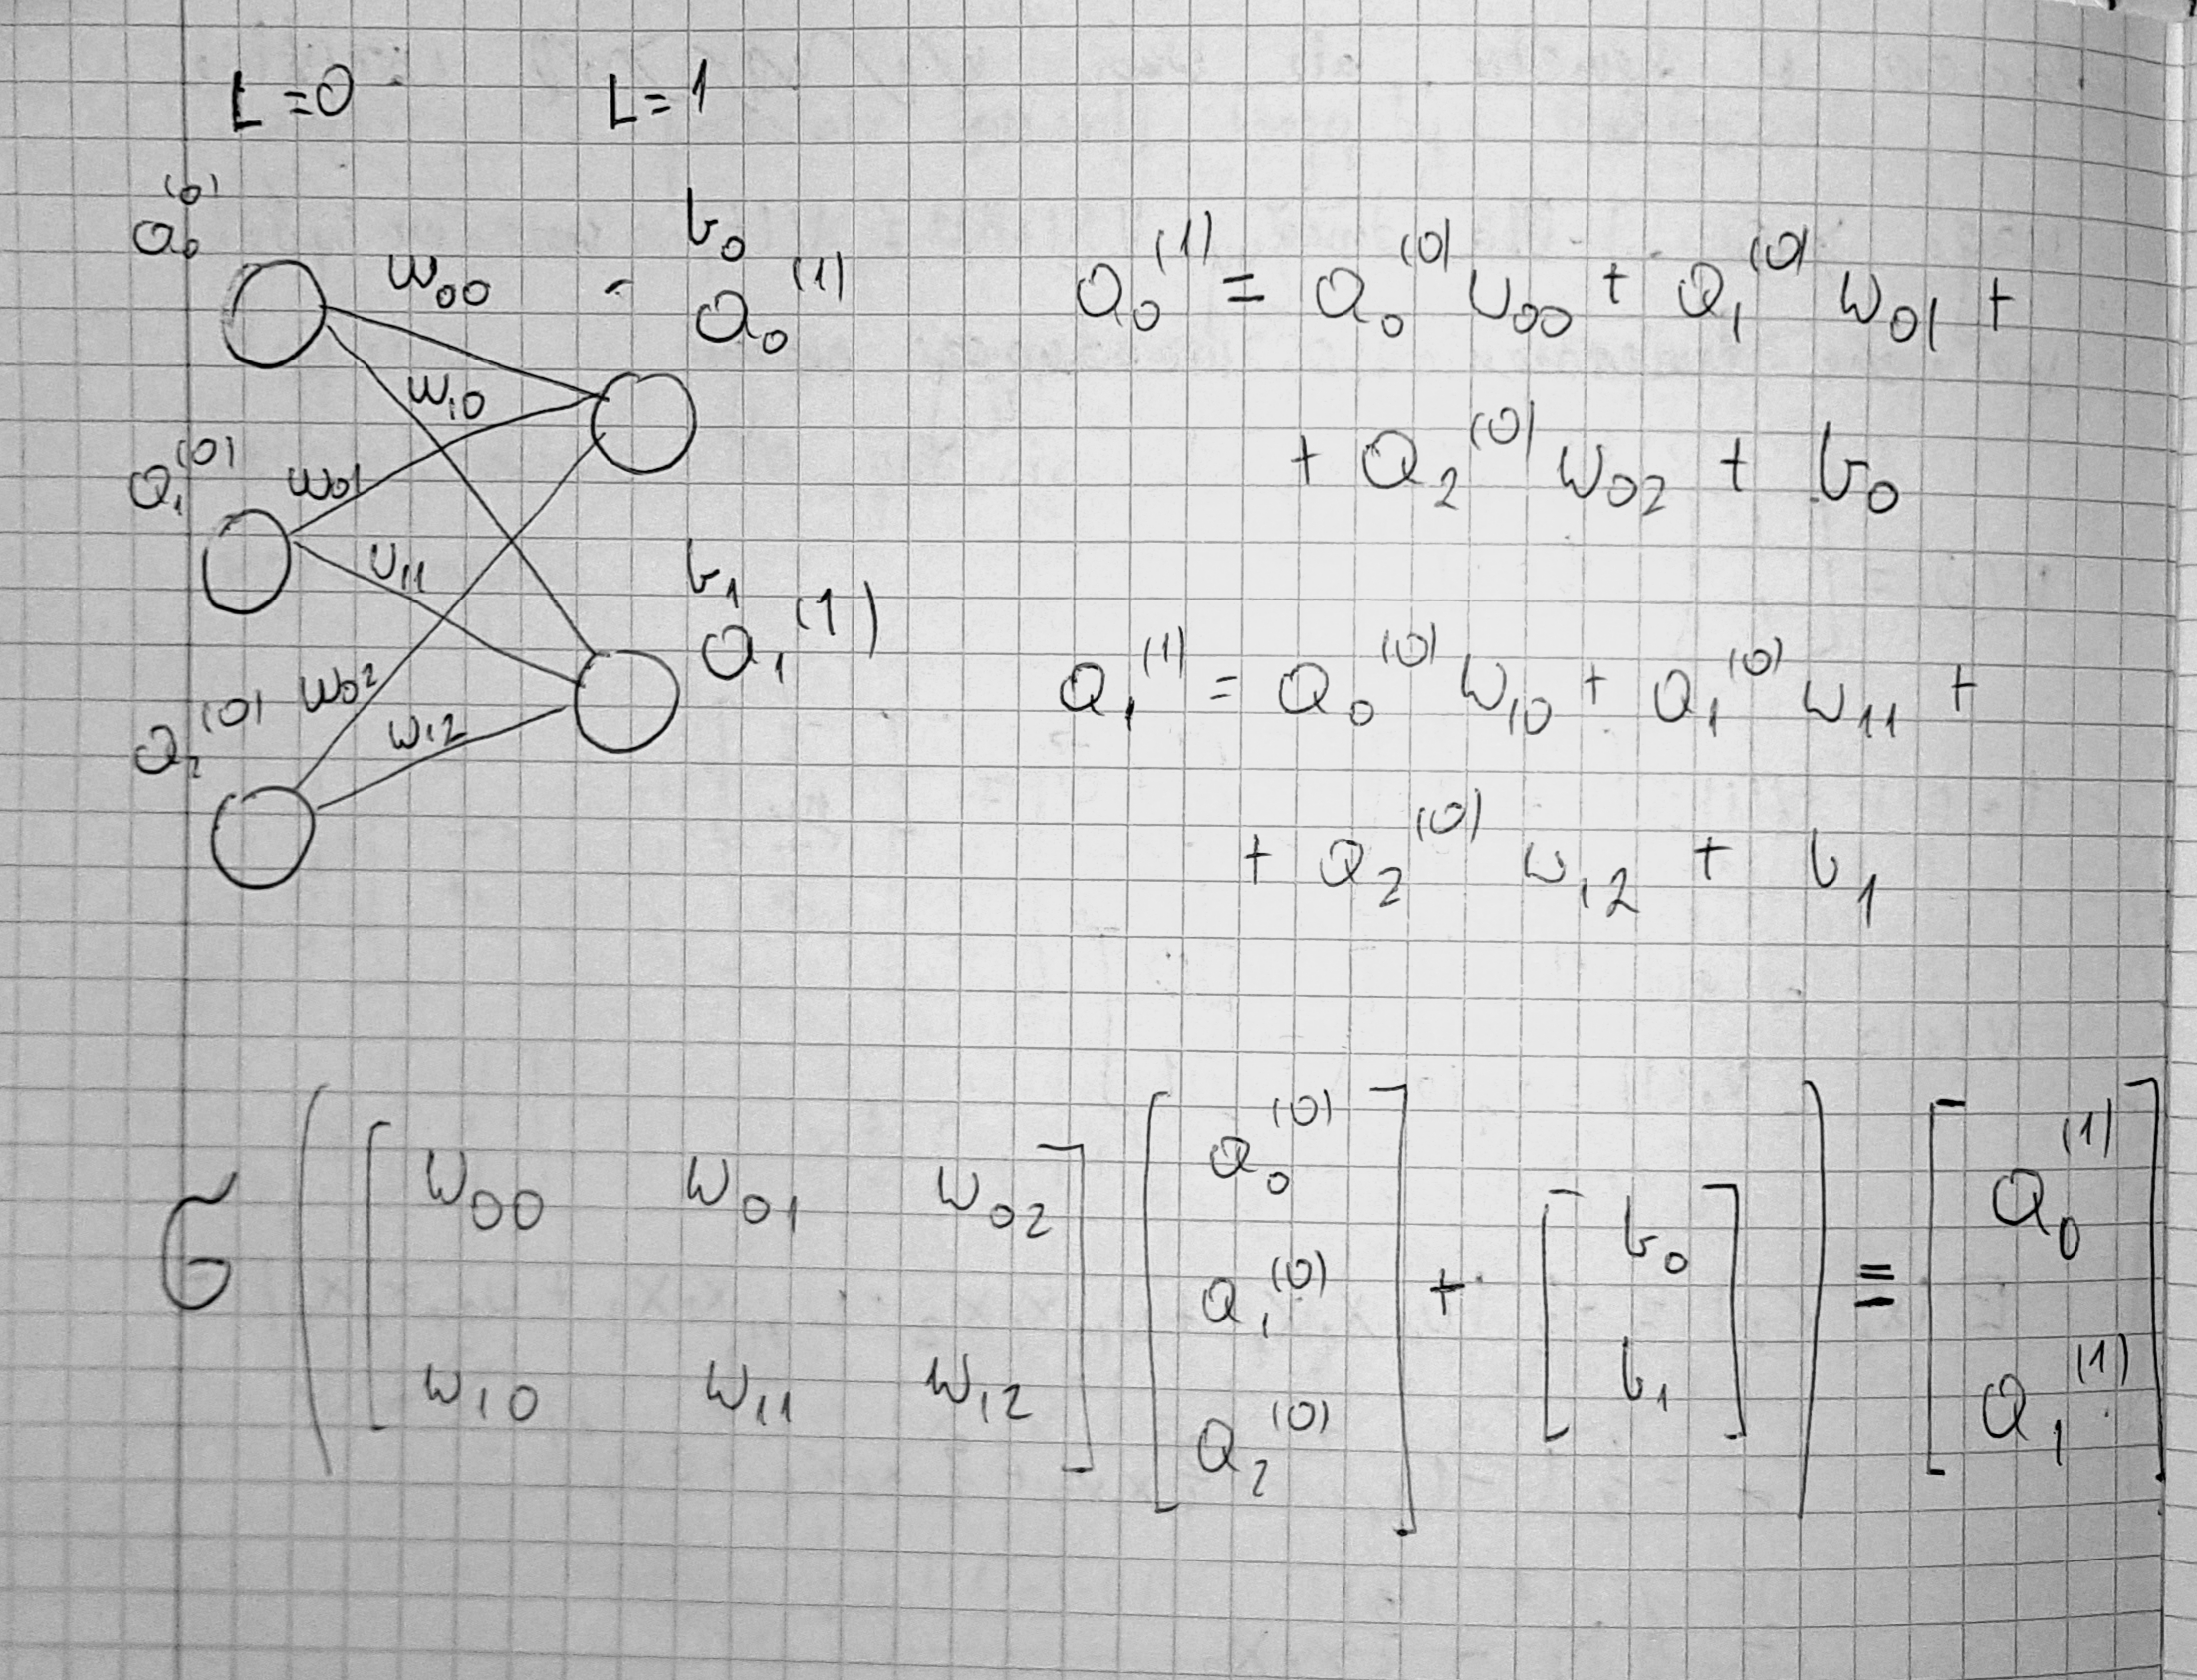 L=0 L=1
a₀⁽⁰⁾
w₀₀
b₀
a₀⁽¹⁾
w₁₀
a₁⁽⁰⁾
w₀₁
w₁₁
b₁
a₁⁽¹⁾
a₂⁽⁰⁾
w₀₂
w₁₂
a₀⁽¹⁾ = a₀⁽⁰⁾ w₀₀ + a₁⁽⁰⁾ w₀₁ +
+ a₂⁽⁰⁾ w₀₂ + b₀
a₁⁽¹⁾ = a₀⁽⁰⁾ w₁₀ + a₁⁽⁰⁾ w₁₁ +
+ a₂⁽⁰⁾ w₁₂ + b₁
σ ( [ w₀₀ w₀₁ w₀₂ ; w₁₀ w₁₁ w₁₂ ] [ a₀⁽⁰⁾ ; a₁⁽⁰⁾ ; a₂⁽⁰⁾ ] + [ b₀ ; b₁ ] ) = [ a₀⁽¹⁾ ; a₁⁽¹⁾ ]